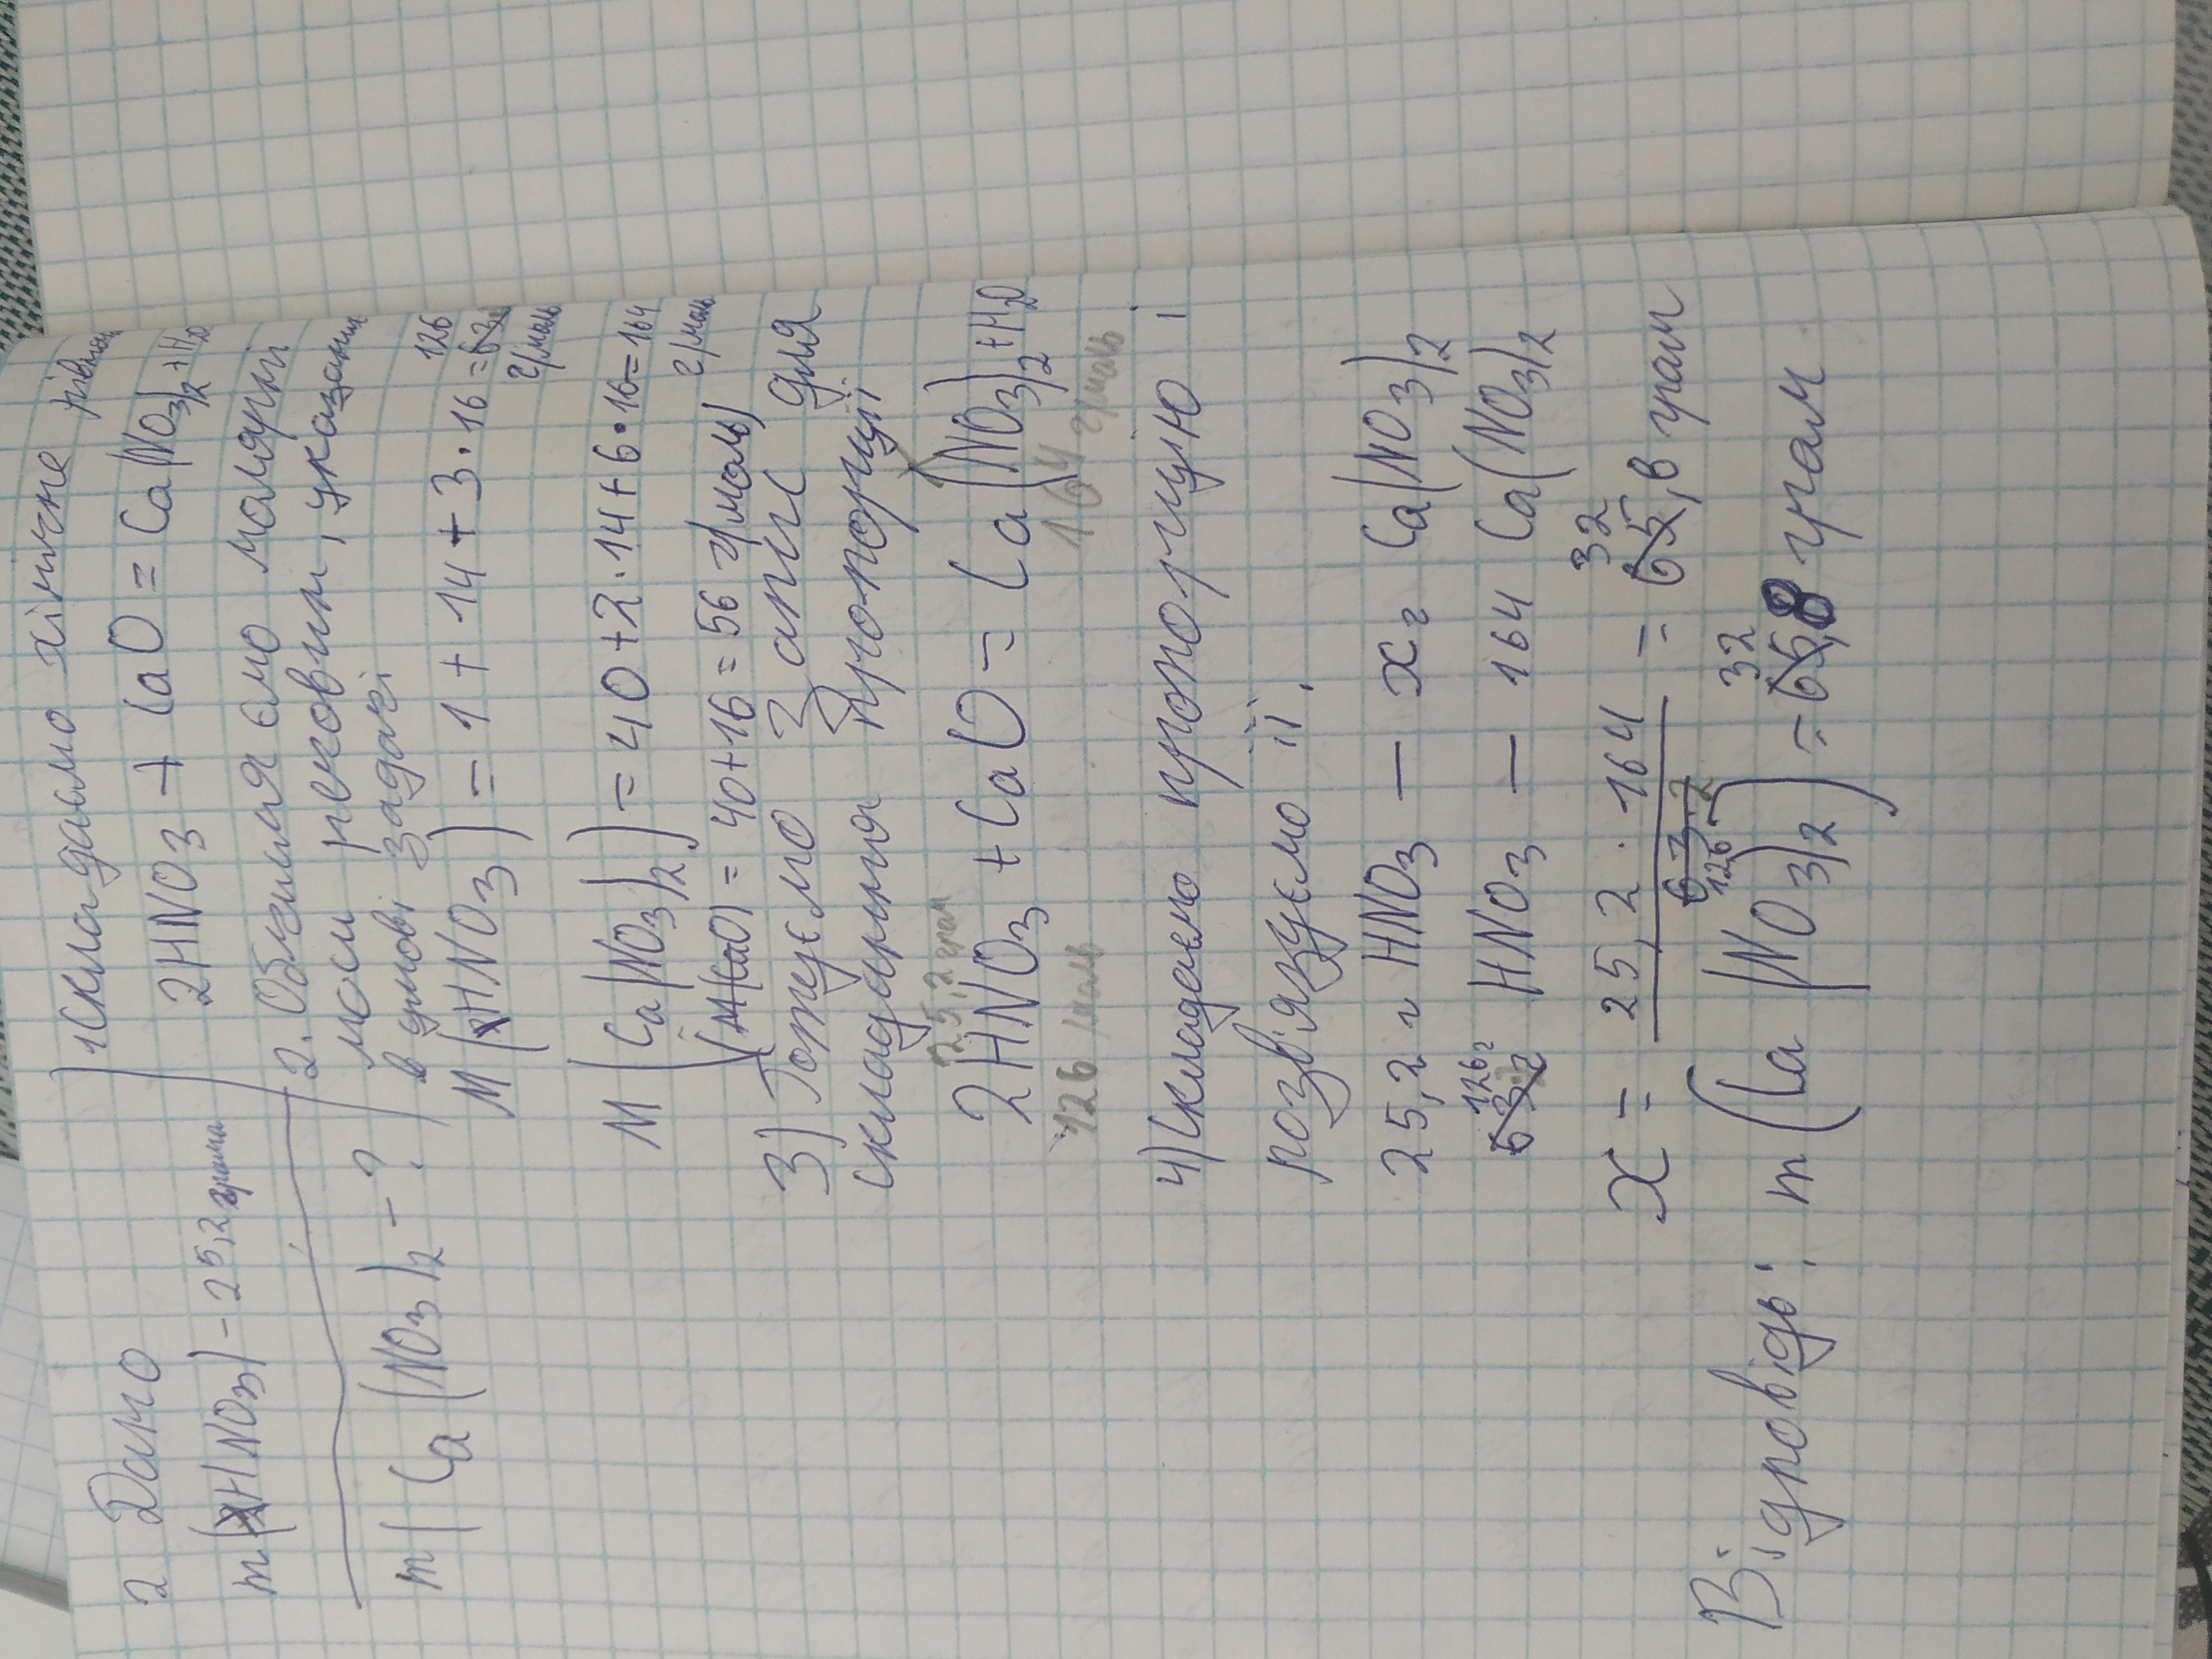 2 Дано
m(HNO3) - 25,2 грама
m(Ca(NO3)2 - ?
1 Складаємо хімічне рівнян
2HNO3 + CaO = Ca(NO3)2 + H2O
2. Обчисляємо молярні
маси речовин, указани
в умові задачі
M(HNO3) = 1 + 14 + 3 · 16 = 63 126 г/моль
M(Ca(NO3)2) = 40 + 2·14 + 6·16 = 164 г/моль
(M(CaO) = 40 + 16 = 56 г/моль)
3) Готуємо запис для
складання пропорції
25,2 грам
2HNO3 + CaO = Ca(NO3)2 + H2O
126 /моль 164 г/моль
4) Складаємо пропорцію і
розв'язуємо її.
25,2 г HNO3 — x г Ca(NO3)2
63 г 126г HNO3 — 164 Ca(NO3)2
x = 25,2 · 164 / 63·2 126 = 65 32,8 грам
Відповідь: m(Ca(NO3)2) = 65 32,8 грам.